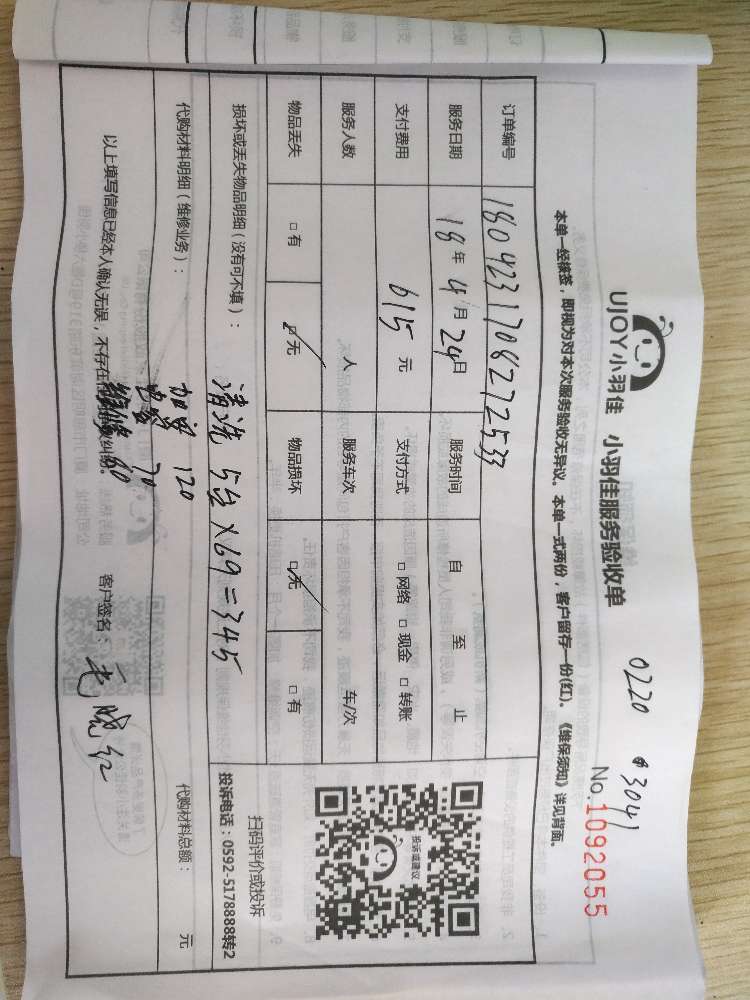 0220 #3041
UJOY小羽佳 小羽佳服务验收单
No.1092055
本单一经核签，即视为对本次服务验收无异议。本单一式两份，客户留存一份(红)。《维保须知》详见背面。
订单编号 180423170827253
服务日期 18年4月24日 服务时间 自 至 止
支付费用 615元 支付方式 □网络 □现金 □转账
服务人数 人 服务车次 车/次
物品丢失 □有 □无 物品损坏 □无 □有
投诉或建议
扫码评价或投诉
投诉电话：0592-5178888转2
损坏或丢失物品明细（没有可不填）： 清洗 5台×69=345
代购材料明细（维修业务）： 代购材料总额： 元
加氟 120
70
维修 80
以上填写信息已经本人确认无误，不存在 纠纷。 客户签名：